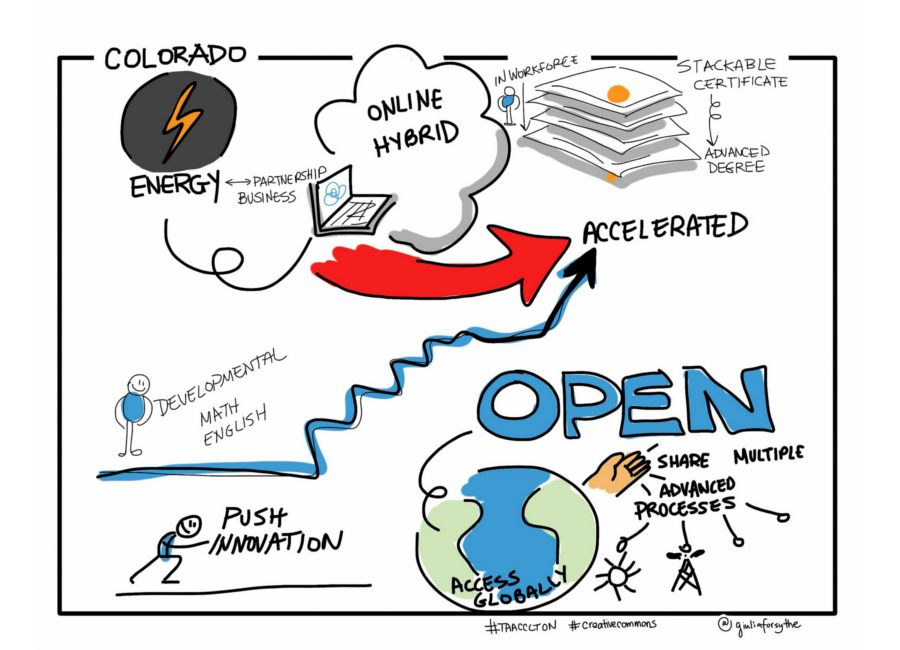 COLORADO
ENERGY
PARTNERSHIP
BUSINESS
ONLINE
HYBRID
IN WORKFORCE
STACKABLE
CERTIFICATE
ADVANCED
DEGREE
ACCELERATED
DEVELOPMENTAL
MATH
ENGLISH
OPEN
SHARE MULTIPLE
ADVANCED
PROCESSES
PUSH
INNOVATION
ACCESS
GLOBALLY
#TAACCCTON #creativecommons
@giuliaforsythe